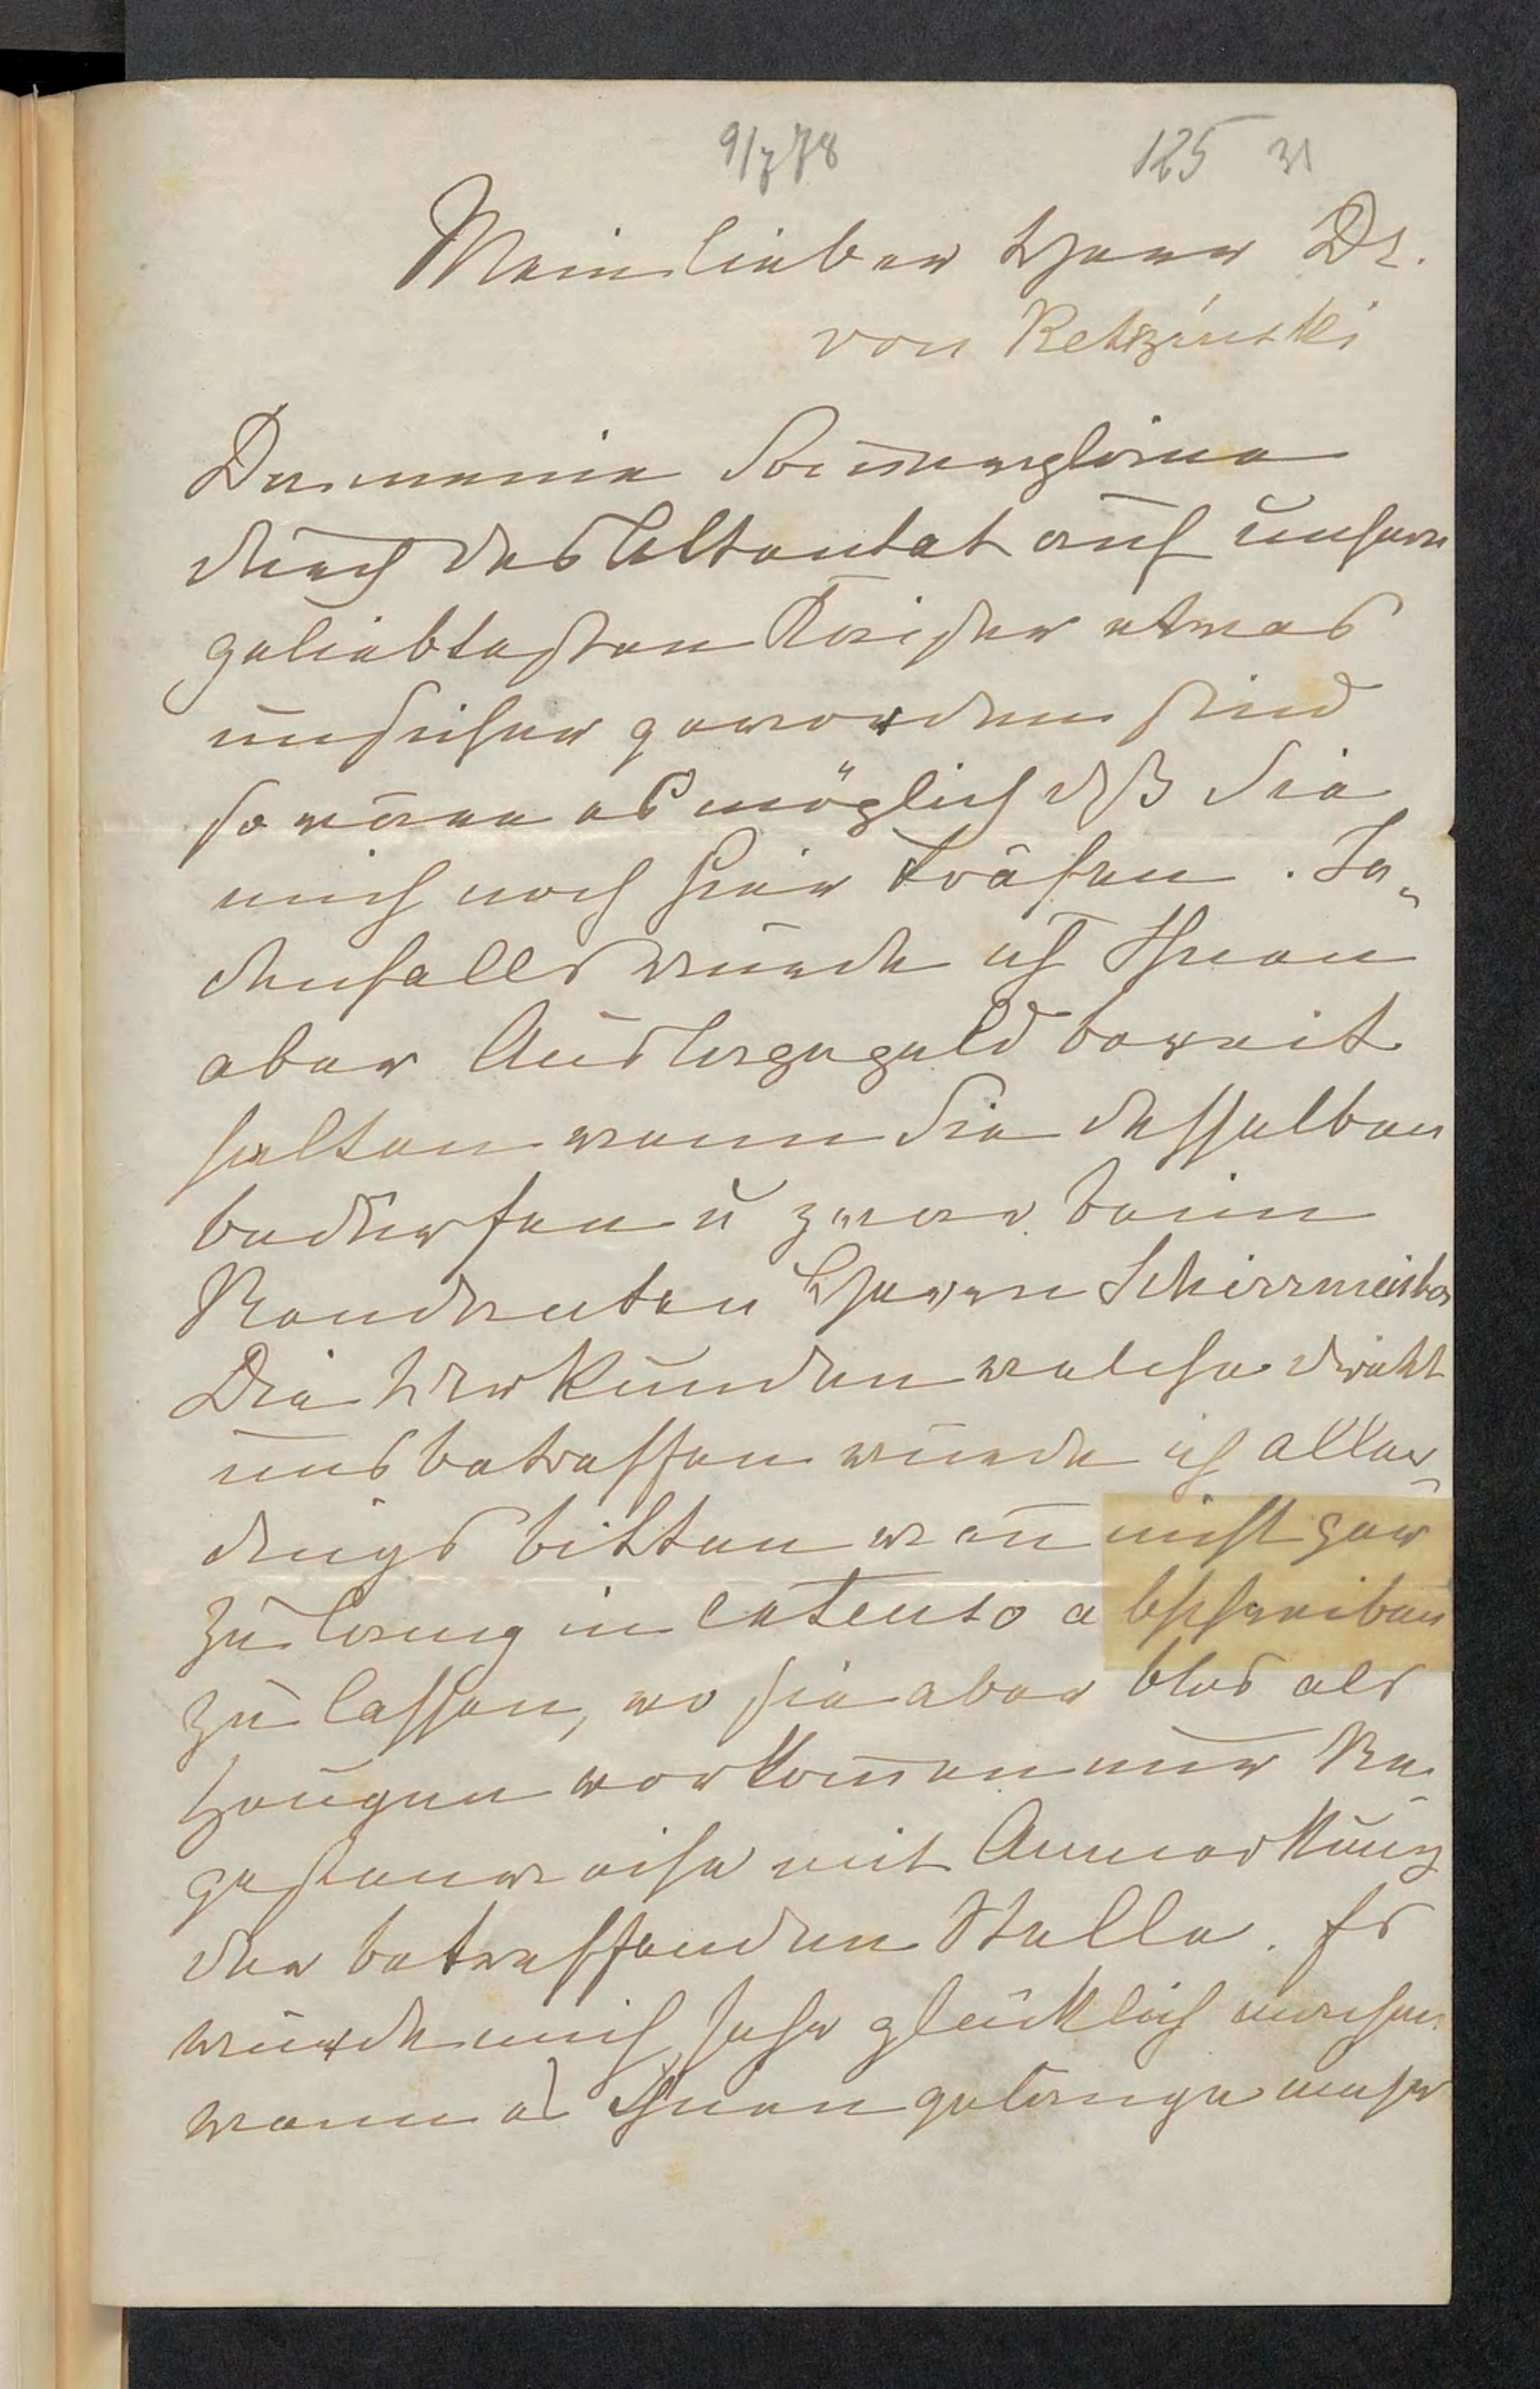 9/7 78
125 31
Mein lieber Herr Dr.
von Ketrzinski
Da meine Som̄erpläne
durch das Attentat auf unsern
geliebtesten Kaiser etwas
unsicher geworden sind
so wäre es möglich daß Sie
mich noch hier träfen. Je-
denfalls würde ich Ihnen
aber Auslagegeld bereit
halten wenn Sie desselben
bedürfen u zwar beim
Rendanten Herrn Schirrmeister
Die Urkunden welche direkt
uns betreffen würde ich aller-
dings bitten wen̄ nicht gar
zu lang in extenso abschreiben
zu lassen, wo sie aber blos als
Zeugen vorkom̄en nur Re-
gestenweise mit Anmerkung
der betreffenden Stelle. Es
würde mich sehr glücklich machen
wenn es Ihnen gelänge mehr